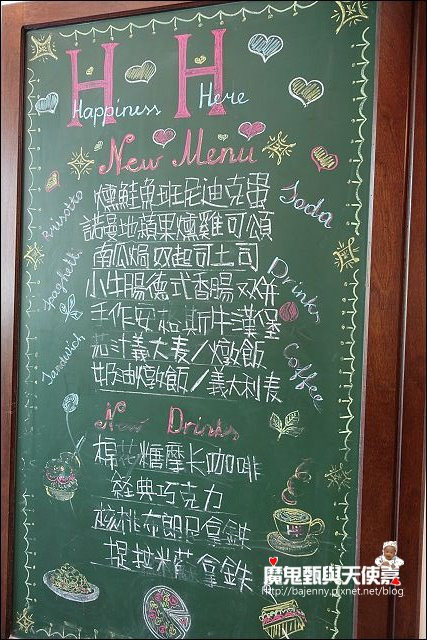 Happiness Here
New Menu
燻鮭魚班尼迪克蛋
諾曼地蘋果燻雞可頌
南瓜焗四起司土司
小牛腸德式香腸双饼
手作安格斯牛漢堡
茄汁義大麦/燉飯
奶油燉飯/義大利麦
New Drinks
棉花糖摩卡咖啡
経典巧克力
核桃布朗尼拿鉄
提拉米蘇拿鉄
Risotto
Spaghetti
Sandwich
Soda
Drinks
Coffee
魔鬼甄與天使嘉
http://bajenny.pixnet.net/blog